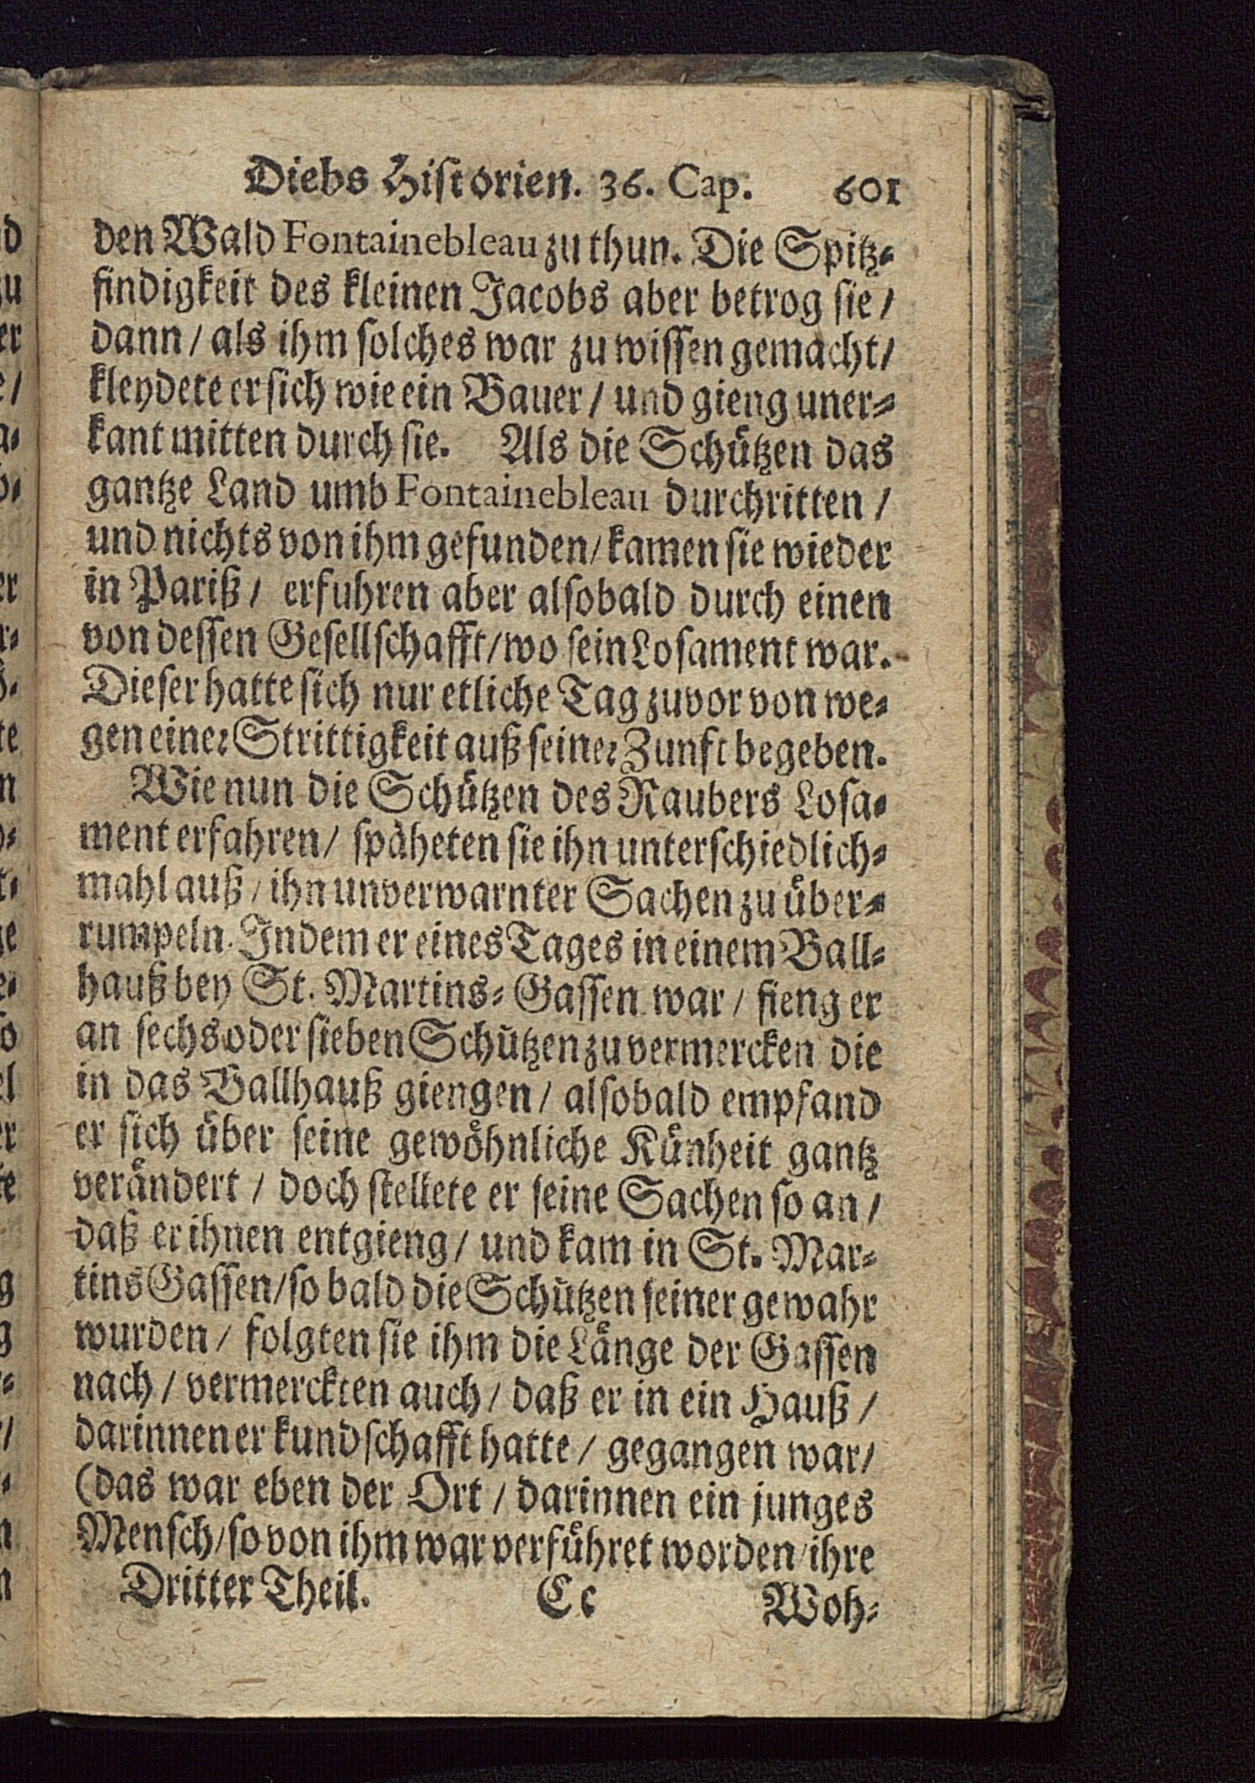 Diebs Historien. 36. Cap. 601
den Wald Fontainebleau zu thun. Die Spitz-
findigkeit des kleinen Jacobs aber betrog sie /
dann / als ihm solches war zu wissen gemacht /
kleydete er sich wie ein Bauer / und gieng uner-
kant mitten durch sie. Als die Schützen das
gantze Land umb Fontainebleau durchritten /
und nichts von ihm gefunden / kamen sie wieder
in Pariß / erfuhren aber alsobald durch einen
von dessen Gesellschafft / wo sein Losament war.
Dieser hatte sich nur etliche Tag zuvor von we-
gen einer Strittigkeit auß seiner Zunft begeben.
Wie nun die Schützen des Raubers Losa-
ment erfahren / späheten sie ihn unterschiedlich-
mahl auß / ihn unverwarnter Sachen zu über-
rumpeln. Indem er eines Tages in einem Ball-
hauß bey St. Martins-Gassen war / fieng er
an sechs oder sieben Schützen zu vermercken die
in das Ballhauß giengen / alsobald empfand
er sich über seine gewöhnliche Künheit gantz
verändert / doch stellete er seine Sachen so an /
daß er ihnen entgieng / und kam in St. Mar-
tins Gassen / so bald die Schützen seiner gewahr
wurden / folgten sie ihm die Länge der Gassen
nach / vermerckten auch / daß er in ein Hauß /
darinnen er kundschafft hatte / gegangen war /
(das war eben der Ort / darinnen ein junges
Mensch / so von ihm war verführet worden / ihre
Dritter Theil. Cc Woh-